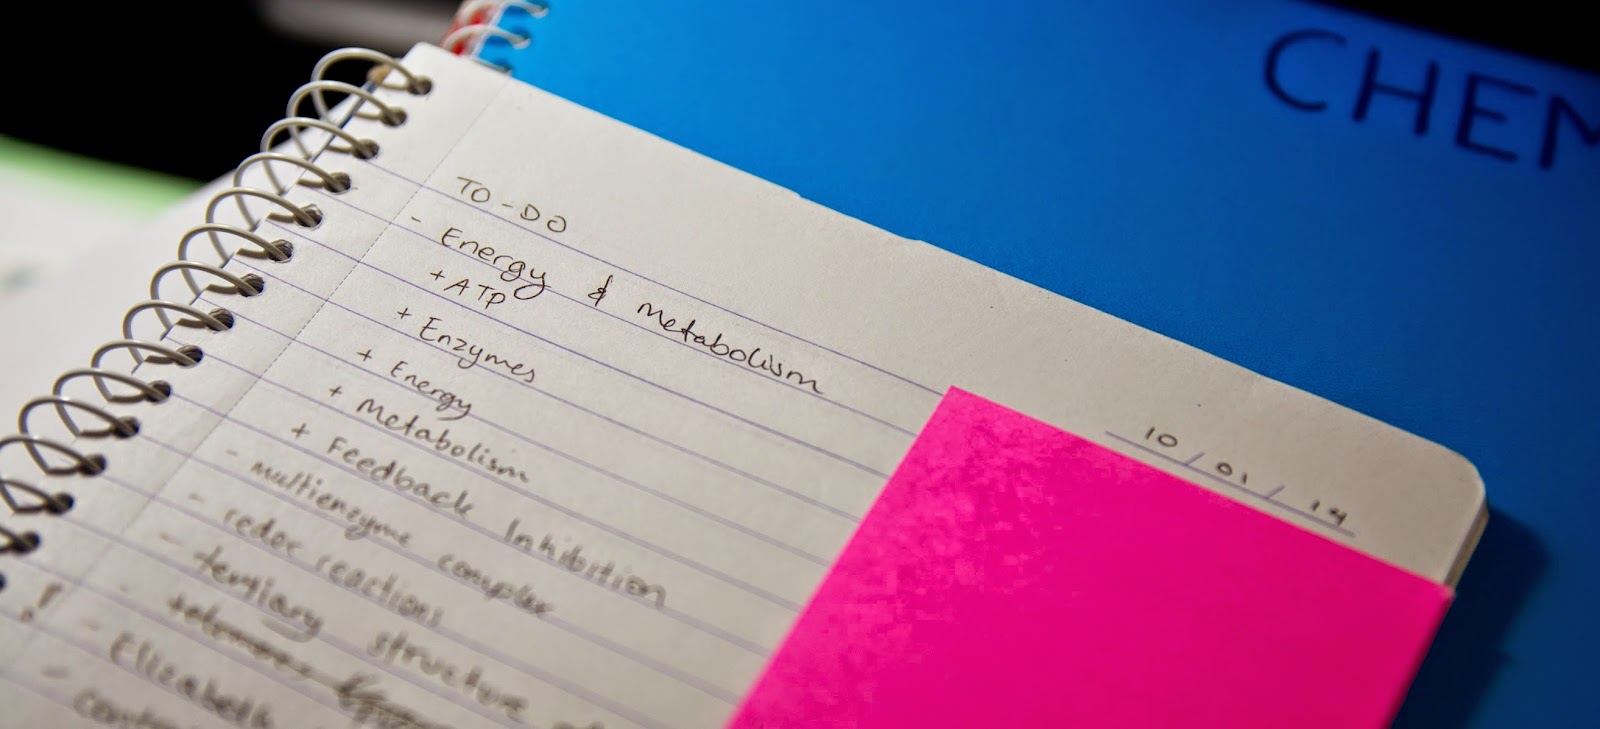 CHEM
TO-DO
- Energy & Metabolism
+ ATP
+ Enzymes
+ Energy
+ Metabolism
+ Feedback Inhibition
- multienzyme complex
- redox reactions
- tertiary structure of
!
10/01/14